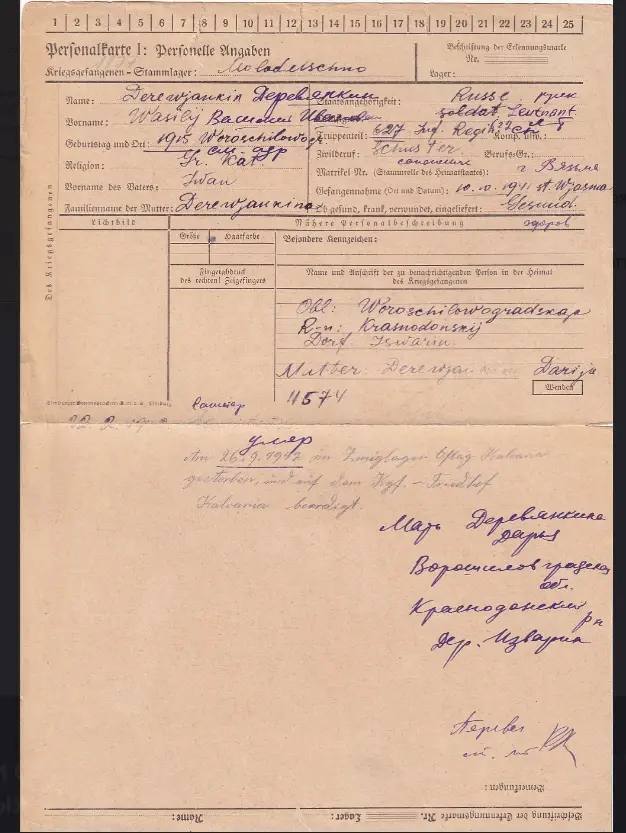 1 2 3 4 5 6 7 8 9 10 11 12 13 14 15 16 17 18 19 20 21 22 23 24 25
Personalkarte I: Personelle Angaben
Kriegsgefangenen-Stammlager: Molodetschno
Beschriftung der Erkennungsmarke
Nr.
Lager:
Des Kriegsgefangenen
Name: Derewjankin Деревянкин
Vorname: Wasilij Василий Иванович
Geburtstag und Ort: 1915 Woroschilowogr
Religion: Gr. Kat
Vorname des Vaters: Iwan
Familienname der Mutter: Derewjankina
Staatsangehörigkeit: Russe
soldat, Leutnant
Truppenteil: 627 Inf. Regim Komp. usw.:
Zivilberuf: Schuster Berufs-Gr.:
Matrikel Nr. (Stammrolle des Heimatstaates) г Вязьма
Gefangennahme (Ort und Datum): 10. 1941 Wjasma
Ob gesund, krank, verwundet, eingeliefert: Gesund.
здоров
Lichtbild
Nähere Personalbeschreibung
Größe Haarfarbe
Besondere Kennzeichen:
Fingerabdruck
des rechten! Zeigefingers
Name und Anschrift der zu benachrichtigenden Person in der Heimat
des Kriegsgefangenen
Obl: Woroschilowogradskaja
R-n: Krasnodonskij
Dorf Iswarin
Mutter: Darija
Wenden
4574
умер
Am 26.9.1942 Kalvaria
gestorben, und auf dem Kgf. - Friedhof
Kalvaria beerdigt.
Мать Деревянкина
Дарья
Ворошиловградская
обл.
Краснодонский
р н
дер. Изварна
Перевел
Bemerkungen:
Beschriftung der Erkennungsmarke Nr. Lager: Name: